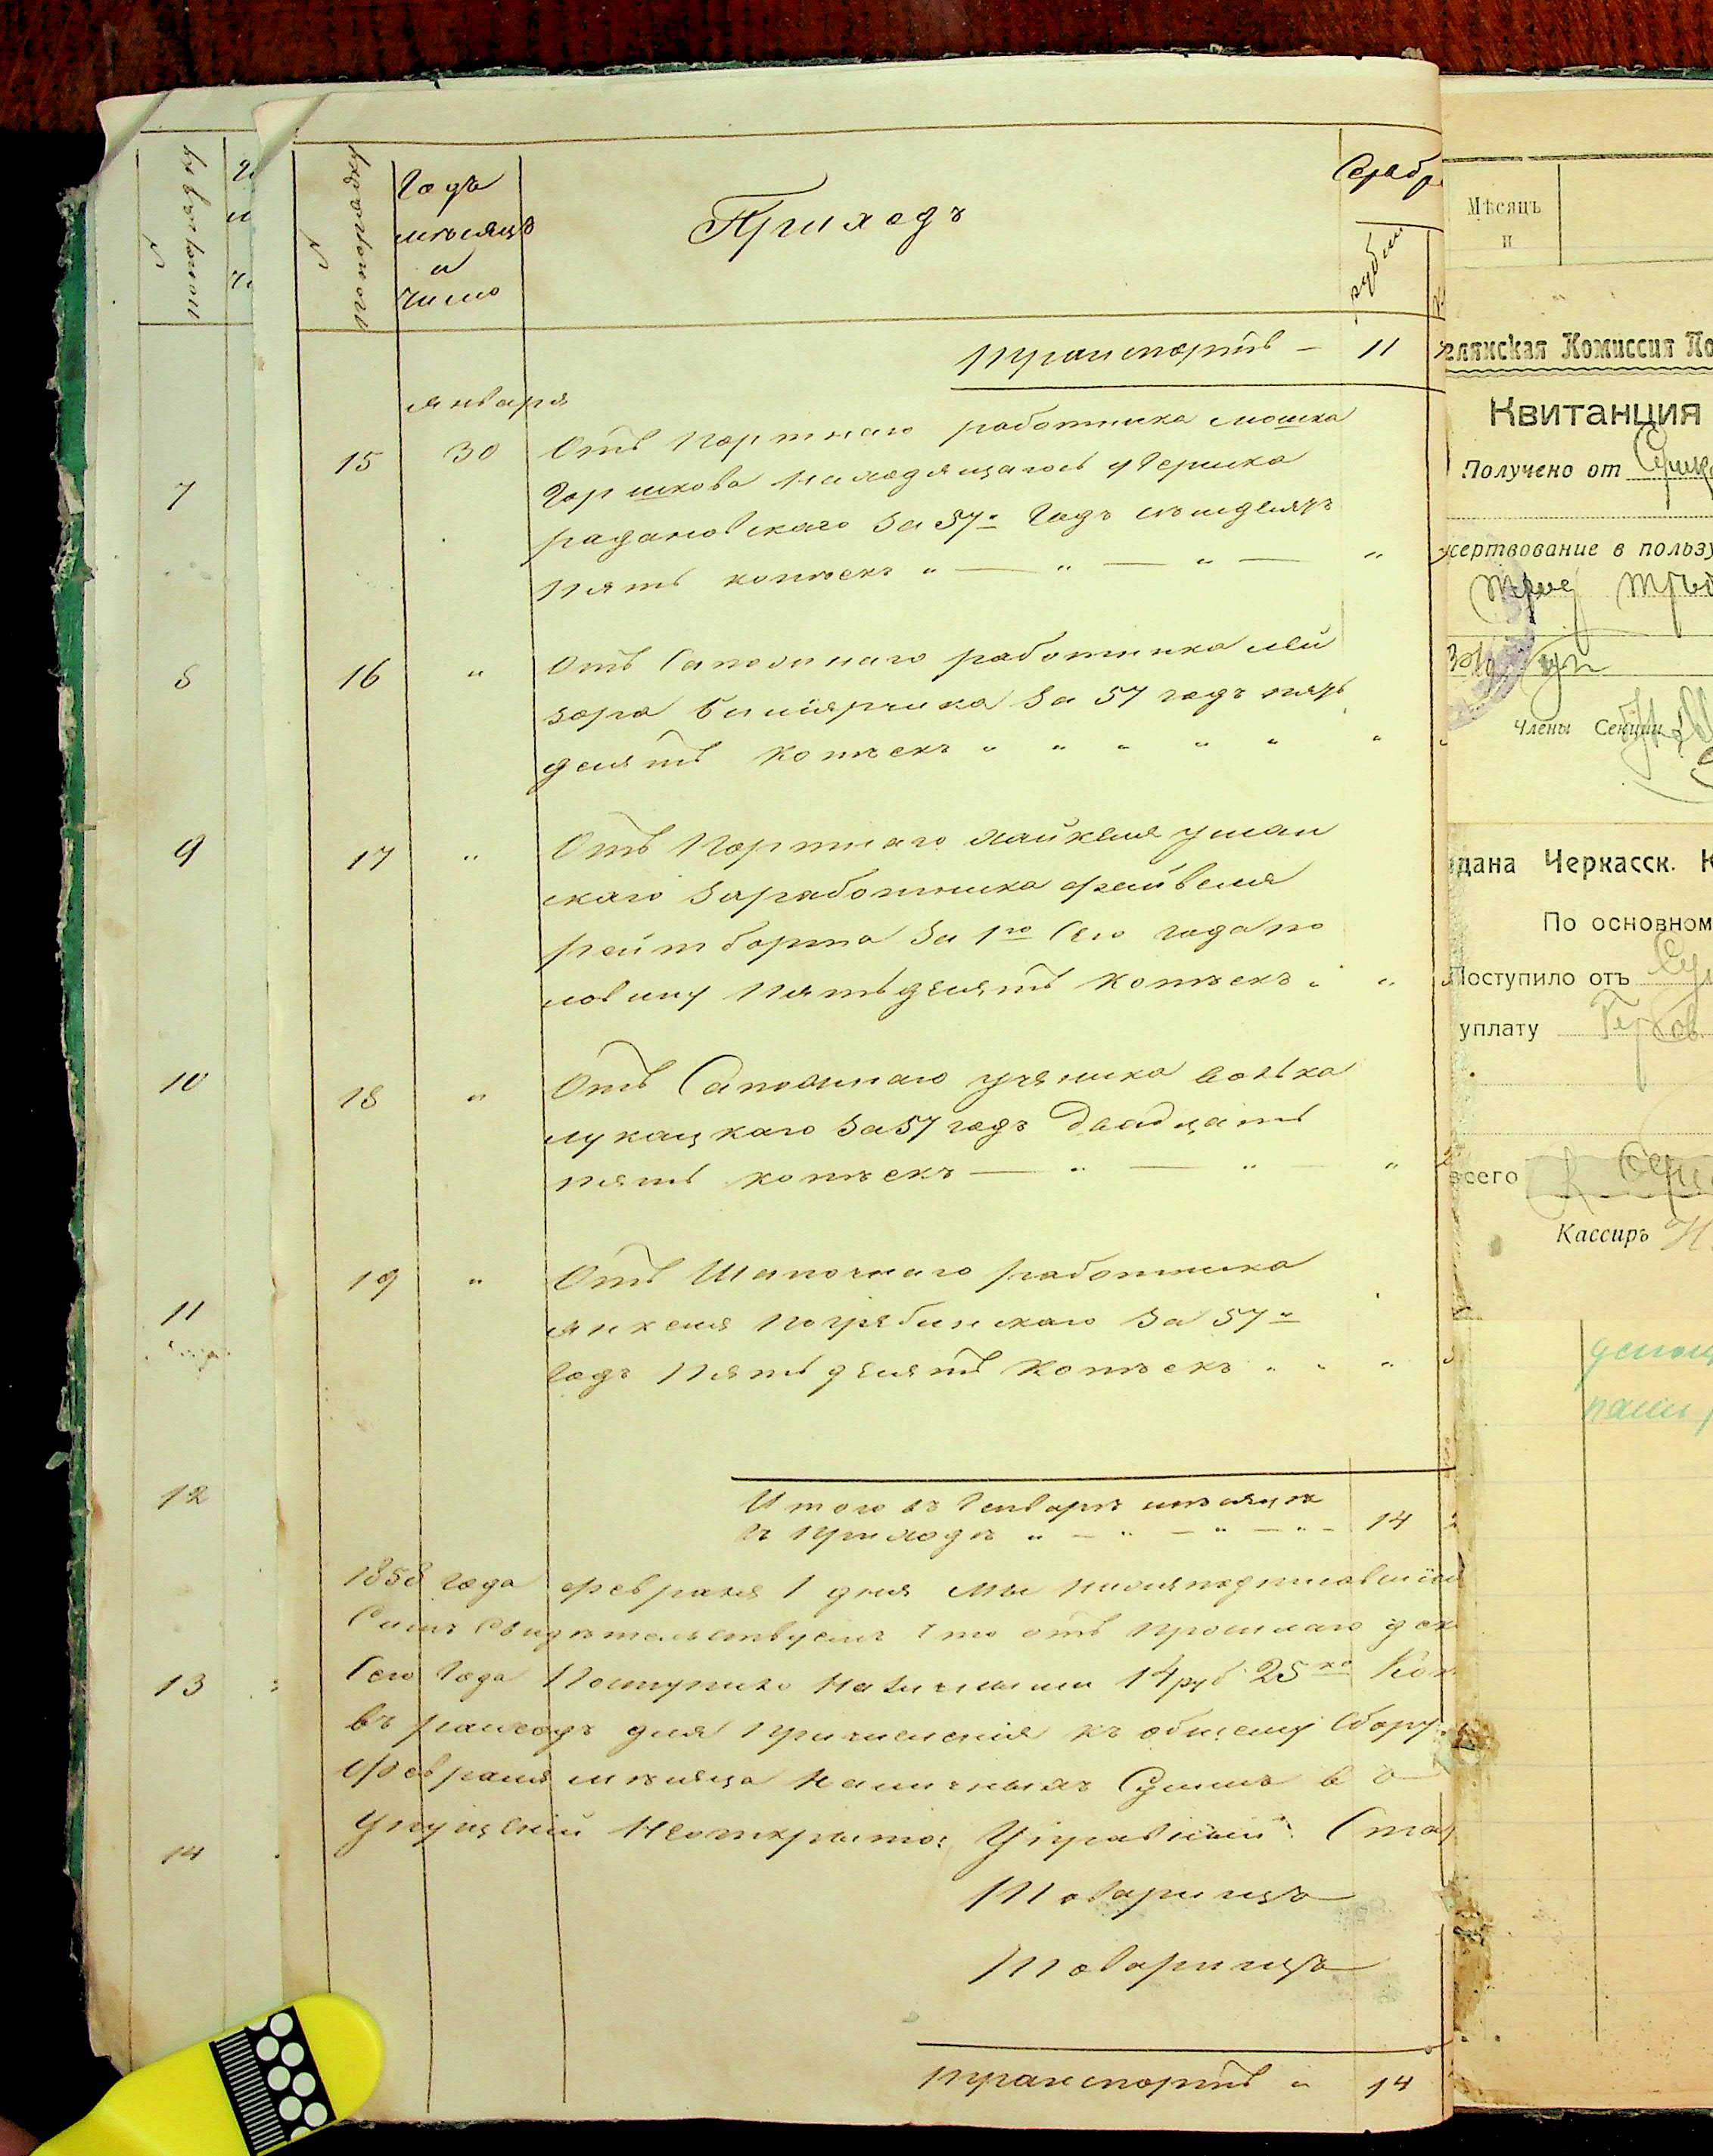 №
по порядку
Годъ
мѣсяцъ
и
число
Приходъ
Серебр
рубли
транспортъ — 11
января
15 30 Отъ портнаго работника Мошка
Горшкова находящагося у Гершка
радановскаго за 57й Годъ семьдесятъ
пять копѣекъ
16 " Отъ Сапожнаго работника Лей
зора за 57 годъ пять
десятъ копѣекъ
17 " Отъ Портнаго Хайкеля уман
скаго за работника Файвеля
рейтборта за 1ю Сего года по
ловину пятьдесятъ копѣекъ
18 " Отъ Сапожнаго ученика Волька
лукацкаго за 57 годъ двадцать
пять копѣекъ
19 " Отъ Шапочнаго работника
янкеля погребинскаго за 57й
Годъ пятьдесятъ копѣекъ
Итого въ Генваре мѣсяцѣ
въ приходѣ 14
1858 года февраля 1 дня мы нижеподписавшіеся
Симъ Свидѣтельствуемъ что отъ прошлаго
Сего Года Поступило наличными 14 руб 25 Коп
въ расходъ для причисленія къ общему Сбору
февраля мѣсяца наличныхъ Суммъ
упущеній Неоткрыто: Управный Ста
Товарищъ
Товарищъ
транспортъ " 14
№
по порядку
7
8
9
10
11
12
13
14
Мѣсяцъ
и
елянская Комиссия По
Квитанция
Получено от
жертвование в пользу
Члены Секции
дана Черкасск. К
По основном
Поступило отъ
уплату
всего
Кассиръ